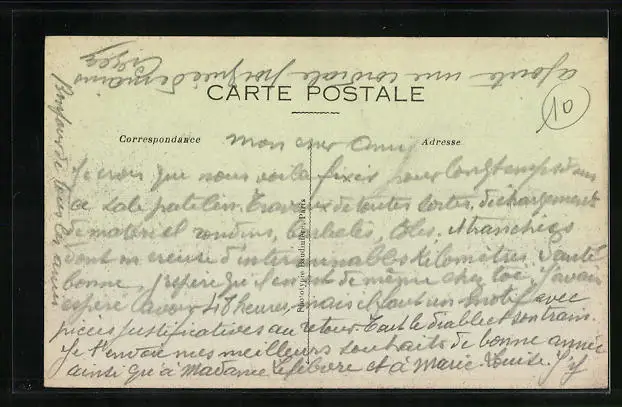 CARTE POSTALE
Correspondance
Adresse
10
Mon cher Ami
Je crois que nous voilà fixés pour longtemps dans
ce sale patelin. Travaux de toutes sortes, déchargements
de matériel rondins, barbelés, tôles. Tranchées
dont on creuse d'interminables kilomètres. Santé
bonne, j'espère qu'il en est de même chez toi. J'avais
espéré avoir 48 heures, mais il faut un motif avec
pièces justificatives au retour tout le diable et son train.
Je t'envoie mes meilleurs souhaits de bonne année
ainsi qu'à Madame Lefebvre et à Marie Louise. J'y
ajoute une cordiale poignée de mains
Bonjour de tous les amis
Phototypie Baudinière, Paris